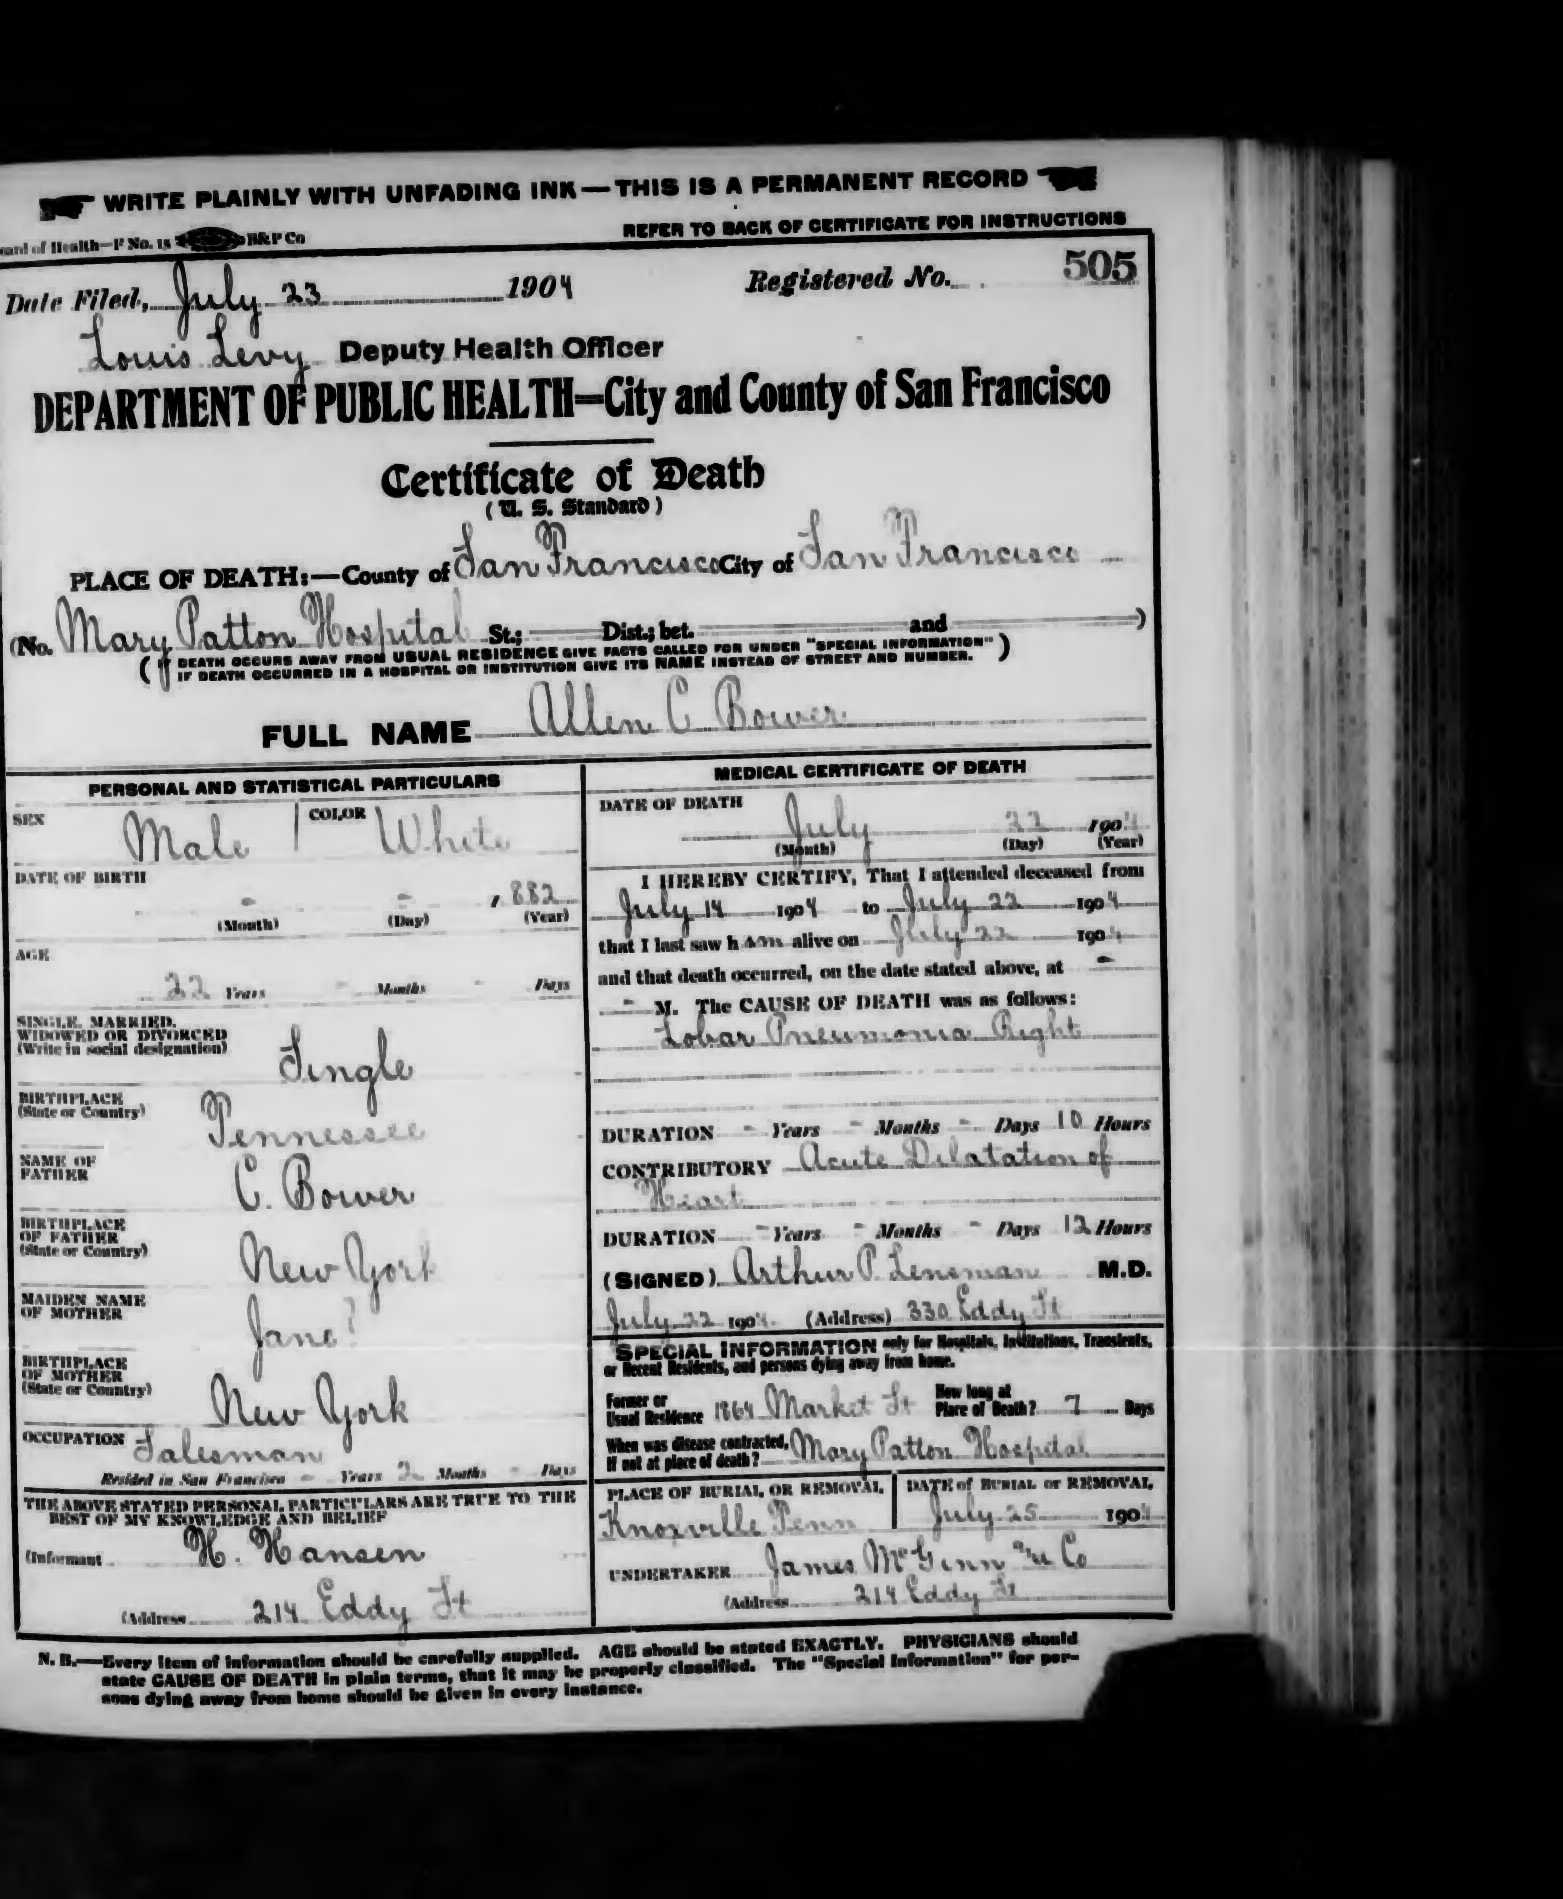 WRITE PLAINLY WITH UNFADING INK—THIS IS A PERMANENT RECORD
ard of Health—F No. 15 B&P Co
REFER TO BACK OF CERTIFICATE FOR INSTRUCTIONS
Date Filed, July 23 1904 Registered No. 505
Louis Levy Deputy Health Officer
DEPARTMENT OF PUBLIC HEALTH—City and County of San Francisco
Certificate of Death
(U. S. Standard)
PLACE OF DEATH:—County of San Francisco City of San Francisco
(No. Mary Patton Hospital St.; Dist.; bet. and )
(IF DEATH OCCURS AWAY FROM USUAL RESIDENCE GIVE FACTS CALLED FOR UNDER "SPECIAL INFORMATION"
IF DEATH OCCURRED IN A HOSPITAL OR INSTITUTION GIVE ITS NAME INSTEAD OF STREET AND NUMBER.)
FULL NAME Allen C Bower
PERSONAL AND STATISTICAL PARTICULARS
SEX Male COLOR White
DATE OF BIRTH
- - , 882
(Month) (Day) (Year)
AGE
22 Years - Months - Days
SINGLE, MARRIED,
WIDOWED OR DIVORCED
(Write in social designation) Single
BIRTHPLACE
(State or Country) Tennessee
NAME OF
FATHER C. Bower
BIRTHPLACE
OF FATHER
(State or Country) New York
MAIDEN NAME
OF MOTHER Jane ?
BIRTHPLACE
OF MOTHER
(State or Country) New York
OCCUPATION Salesman
Resided in San Francisco - Years 2 Months - Days
THE ABOVE STATED PERSONAL PARTICULARS ARE TRUE TO THE
BEST OF MY KNOWLEDGE AND BELIEF
(Informant H. Hansen
(Address 214 Eddy St
MEDICAL CERTIFICATE OF DEATH
DATE OF DEATH
July 22 1904
(Month) (Day) (Year)
I HEREBY CERTIFY, That I attended deceased from
July 14 1904 to July 22 1904
that I last saw him alive on July 22 1904
and that death occurred, on the date stated above, at -
- M. The CAUSE OF DEATH was as follows:
Lobar Pneumonia Right
DURATION - Years - Months - Days 10 Hours
CONTRIBUTORY Acute Dilatation of
Heart
DURATION - Years - Months - Days 12 Hours
(SIGNED) Arthur P. M.D.
July 22 1904 (Address) 330 Eddy St
SPECIAL INFORMATION only for Hospitals, Institutions, Transients,
or Recent Residents, and persons dying away from home.
Former or
Usual Residence 1864 Market St How long at
Place of Death? 7 Days
When was disease contracted,
If not at place of death? Mary Patton Hospital
PLACE OF BURIAL OR REMOVAL DATE of BURIAL or REMOVAL
Knoxville Penn July 25 1904
UNDERTAKER James McGinn & Co
(Address 214 Eddy St
N. B.—Every item of information should be carefully supplied. AGE should be stated EXACTLY. PHYSICIANS should
state CAUSE OF DEATH in plain terms, that it may be properly classified. The "Special Information" for per-
sons dying away from home should be given in every instance.